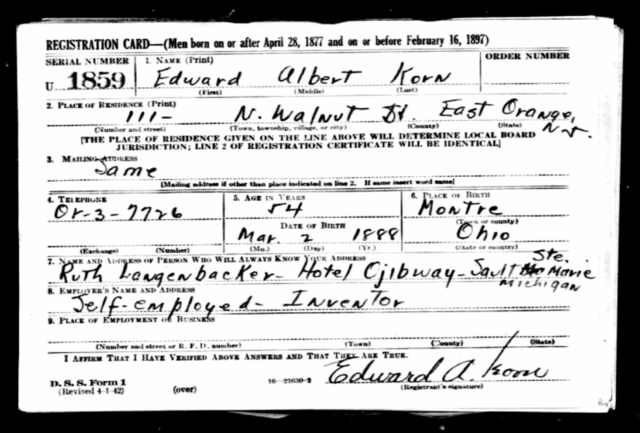 REGISTRATION CARD—(Men born on or after April 28, 1877 and on or before February 16, 1897)
SERIAL NUMBER 1. NAME (Print) ORDER NUMBER
U 1859 Edward Albert Korn
(First) (Middle) (Last)
2. PLACE OF RESIDENCE (Print)
111- N. Walnut St. East Orange, N.J.
(Number and street) (Town, township, village, or city) (County) (State)
[THE PLACE OF RESIDENCE GIVEN ON THE LINE ABOVE WILL DETERMINE LOCAL BOARD
JURISDICTION; LINE 2 OF REGISTRATION CERTIFICATE WILL BE IDENTICAL]
3. MAILING ADDRESS
Same
[Mailing address if other than place indicated on line 2. If same insert word same]
4. TELEPHONE 5. AGE IN YEARS 6. PLACE OF BIRTH
Or-3-7726 54 Montre
DATE OF BIRTH (Town or county)
Mar. 2 1888 Ohio
(Exchange) (Number) (Mo.) (Day) (Yr.) (State or country)
7. NAME AND ADDRESS OF PERSON WHO WILL ALWAYS KNOW YOUR ADDRESS
Ruth Langenbacker- Hotel Ojibway- Sault Ste. Marie
Michigan
8. EMPLOYER'S NAME AND ADDRESS
Self-employed- Inventor
9. PLACE OF EMPLOYMENT OR BUSINESS
(Number and street or R. F. D. number) (Town) (County) (State)
I AFFIRM THAT I HAVE VERIFIED ABOVE ANSWERS AND THAT THEY ARE TRUE.
D. S. S. Form 1 Edward A. Korn
(Revised 4-1-42) (over) 16—21630-2 (Registrant's signature)